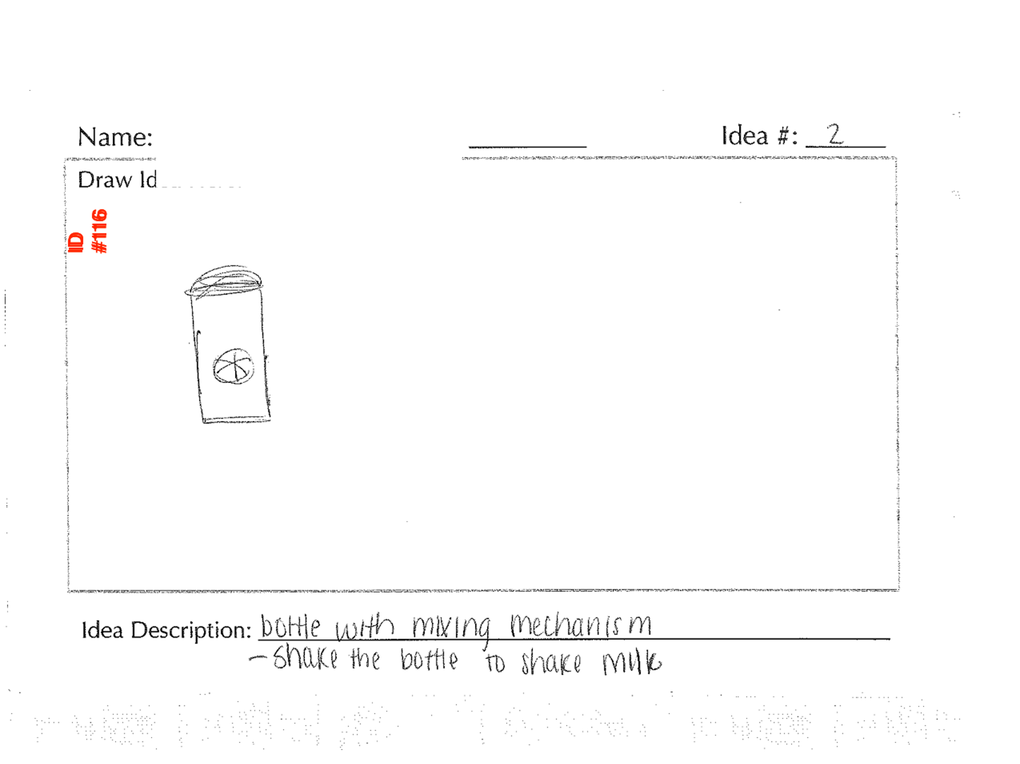 Name: Idea #: 2
Draw Id
ID
#116
Idea Description: bottle with mixing mechanism
- shake the bottle to shake milk